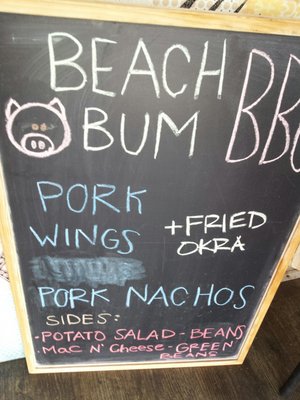 BEACH
BUM
BBQ
PORK
WINGS
+FRIED
OKRA
PORK NACHOS
SIDES:
·POTATO SALAD-BEANS
·Mac N' Cheese-GREEN
BEANS